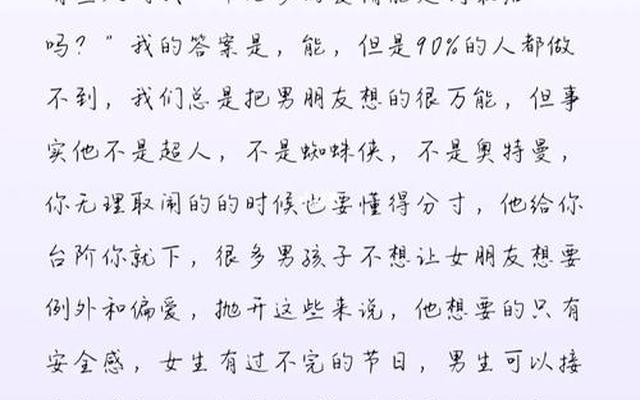 吗？”我的答案是，能，但是90%的人都做
不到，我们总是把男朋友想的很万能，但事
实他不是超人，不是蜘蛛侠，不是奥特曼，
你无理取闹的的时候也要懂得分寸，他给你
台阶你就下，很多男孩子不想让女朋友想要
例外和偏爱，抛开这些来说，他想要的只有
安全感，女生有过不完的节日，男生可以接